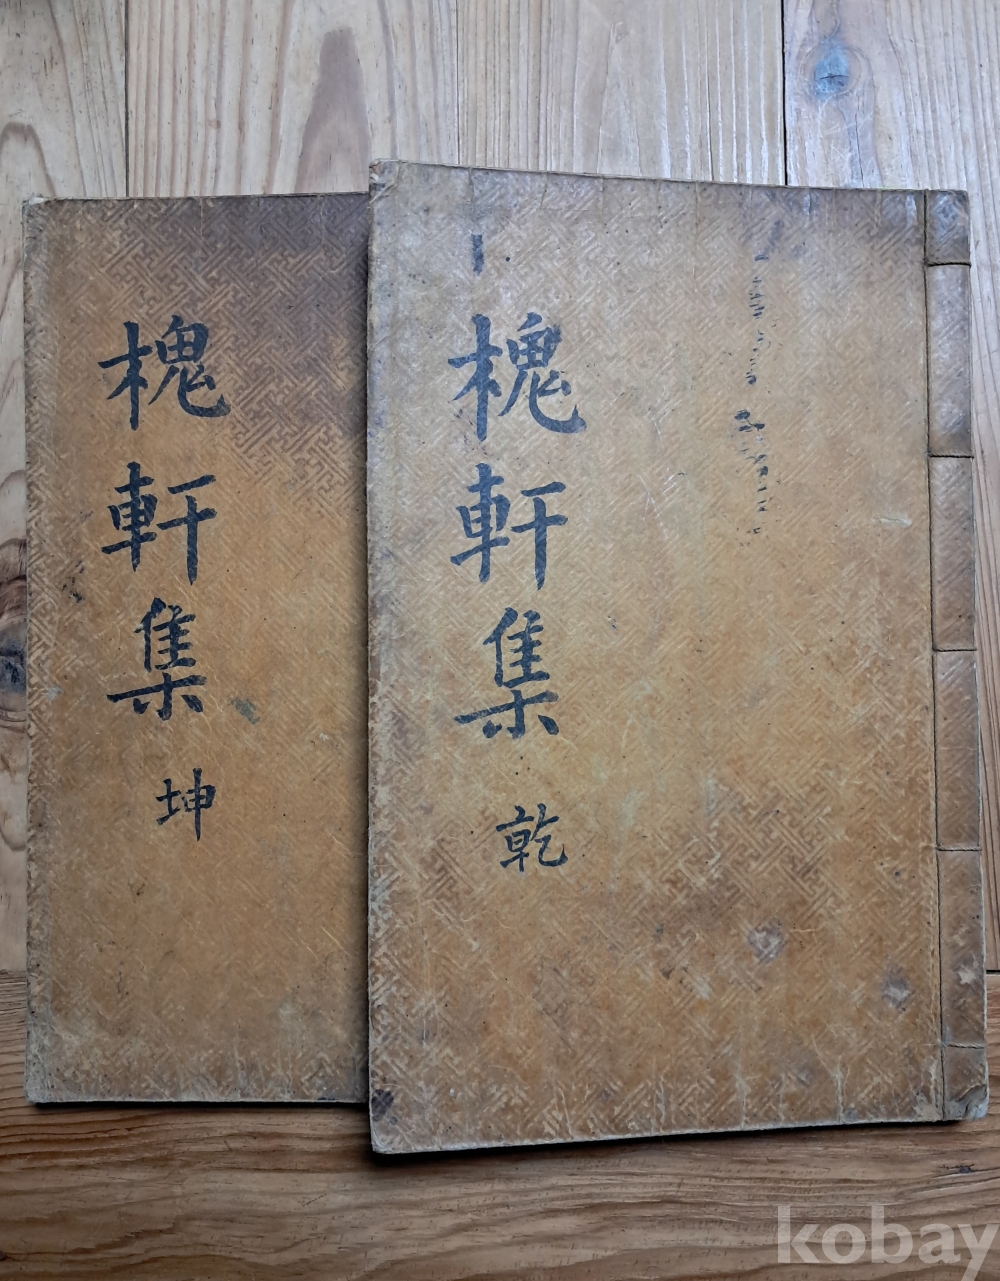 槐軒集
乾
槐軒集
坤
kobay